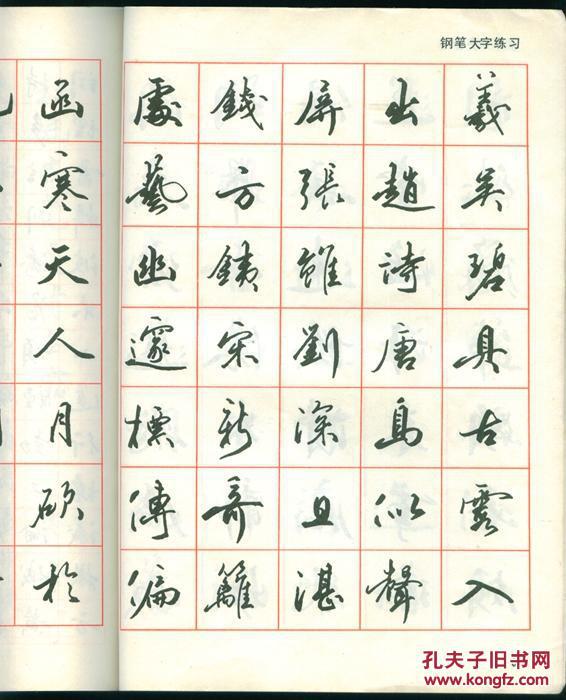 钢笔大字练习
羲吴碧具古露入
出趙詩唐島似聲
屏張雖劉深且湛
錢方銕宋新籬
處藝幽邃標傳偏
函寒天人月於
孔夫子旧书网
www.kongfz.com